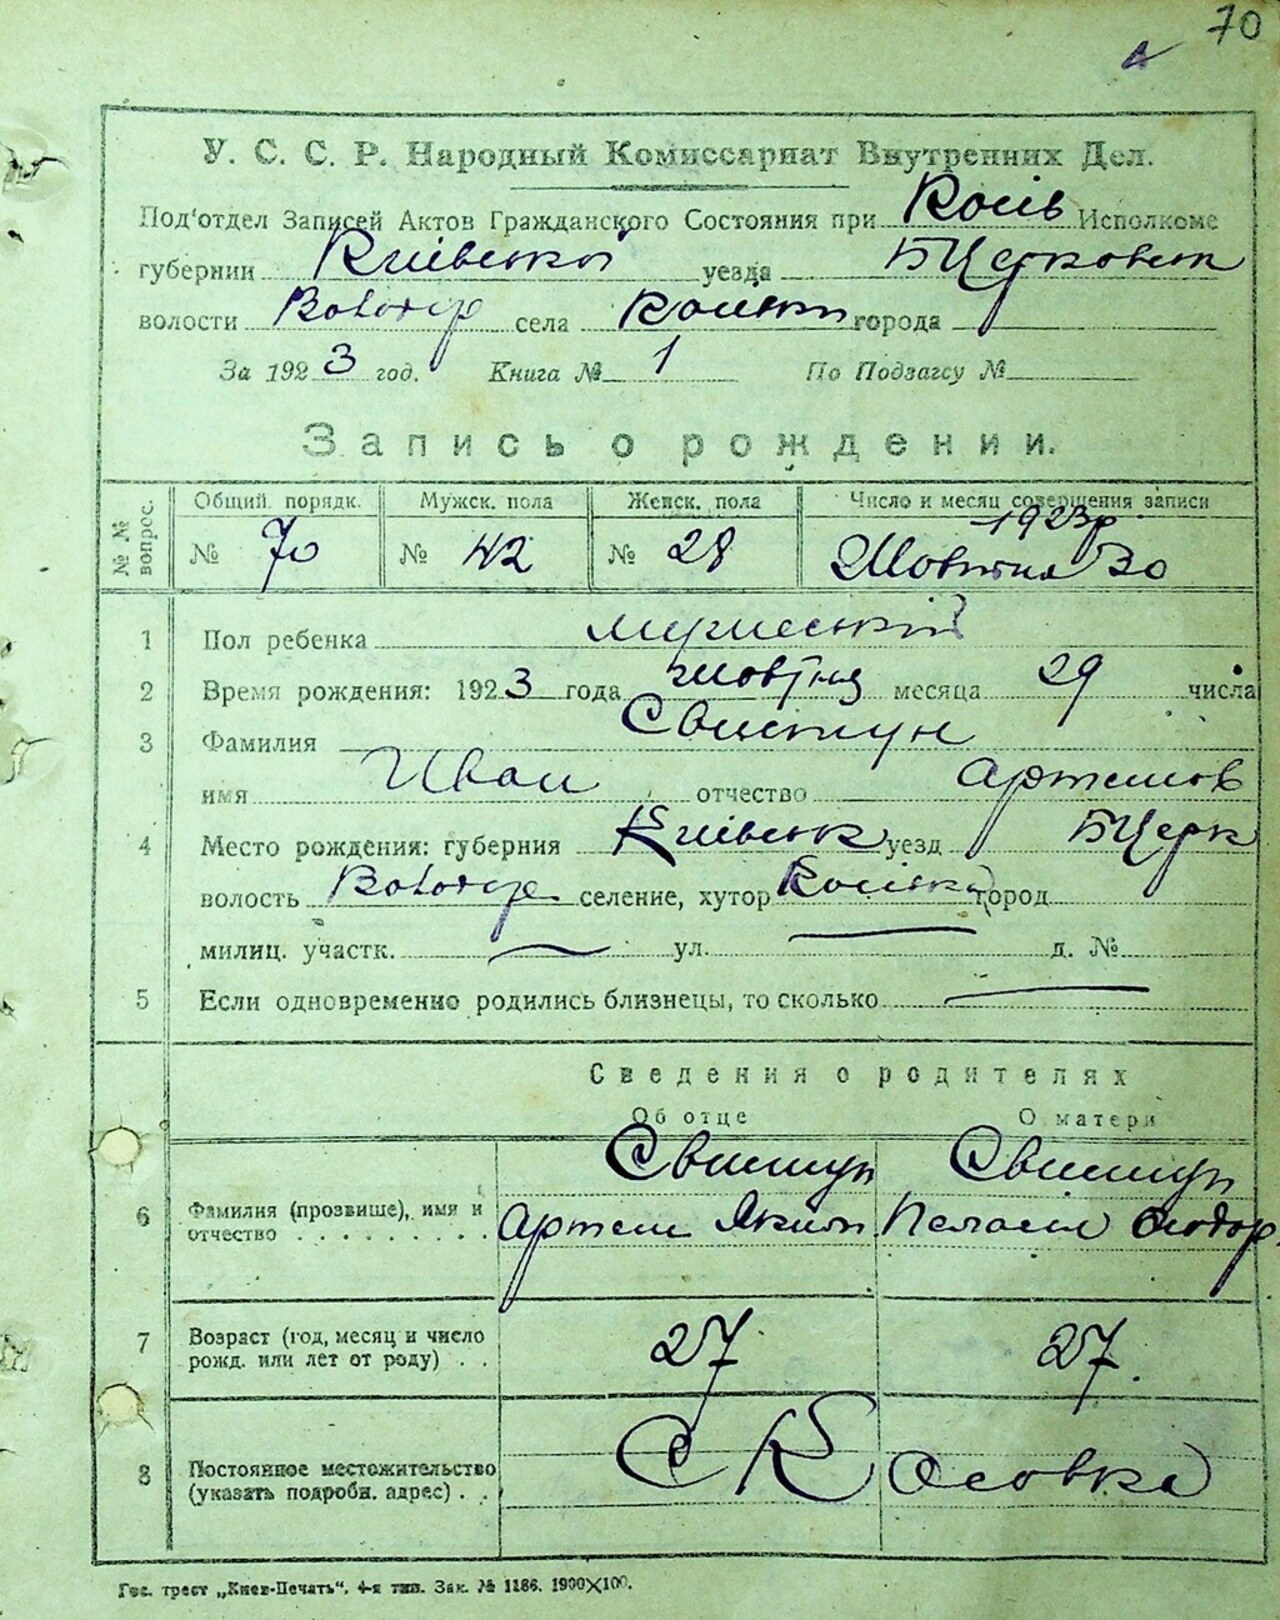 70
У. С. С. Р. Народный Комиссариат Внутренних Дел.
Под'отдел Записей Актов Гражданского Состояния при Косів Исполкоме
губернии Київської уезда БЦерковськ
волости Володар села города
За 1923 год. Книга № 1 По Подзагсу №
Запись о рождении.
№ № вопрос. Общий порядк. Мужск. пола Женск. пола Число и месяц совершения записи
1923р
№ 70 № 42 № 28 Жовтня 30
1 Пол ребенка
2 Время рождения: 1923 года Жовтня месяца 29 числа
3 Фамилия Свистун
имя Иван отчество Артемов
4 Место рождения: губерния Київськ уезд БЦерк
волость Володар селение, хутор город
милиц. участк. ул. д. №
5 Если одновременно родились близнецы, то сколько
Сведения о родителях
Об отце О матери
Свистун Свистун
6 Фамилия (прозвише), имя и отчество Артем Яким. Пелагея Федор.
7 Возраст (год, месяц и число рожд. или лет от роду) 27 27.
8 Постоянное местожительство (указать подробн. адрес) С К Осовка
Гос. трест „Киев-Печать“. 4-я тип. Зак. № 1186. 1900×100.